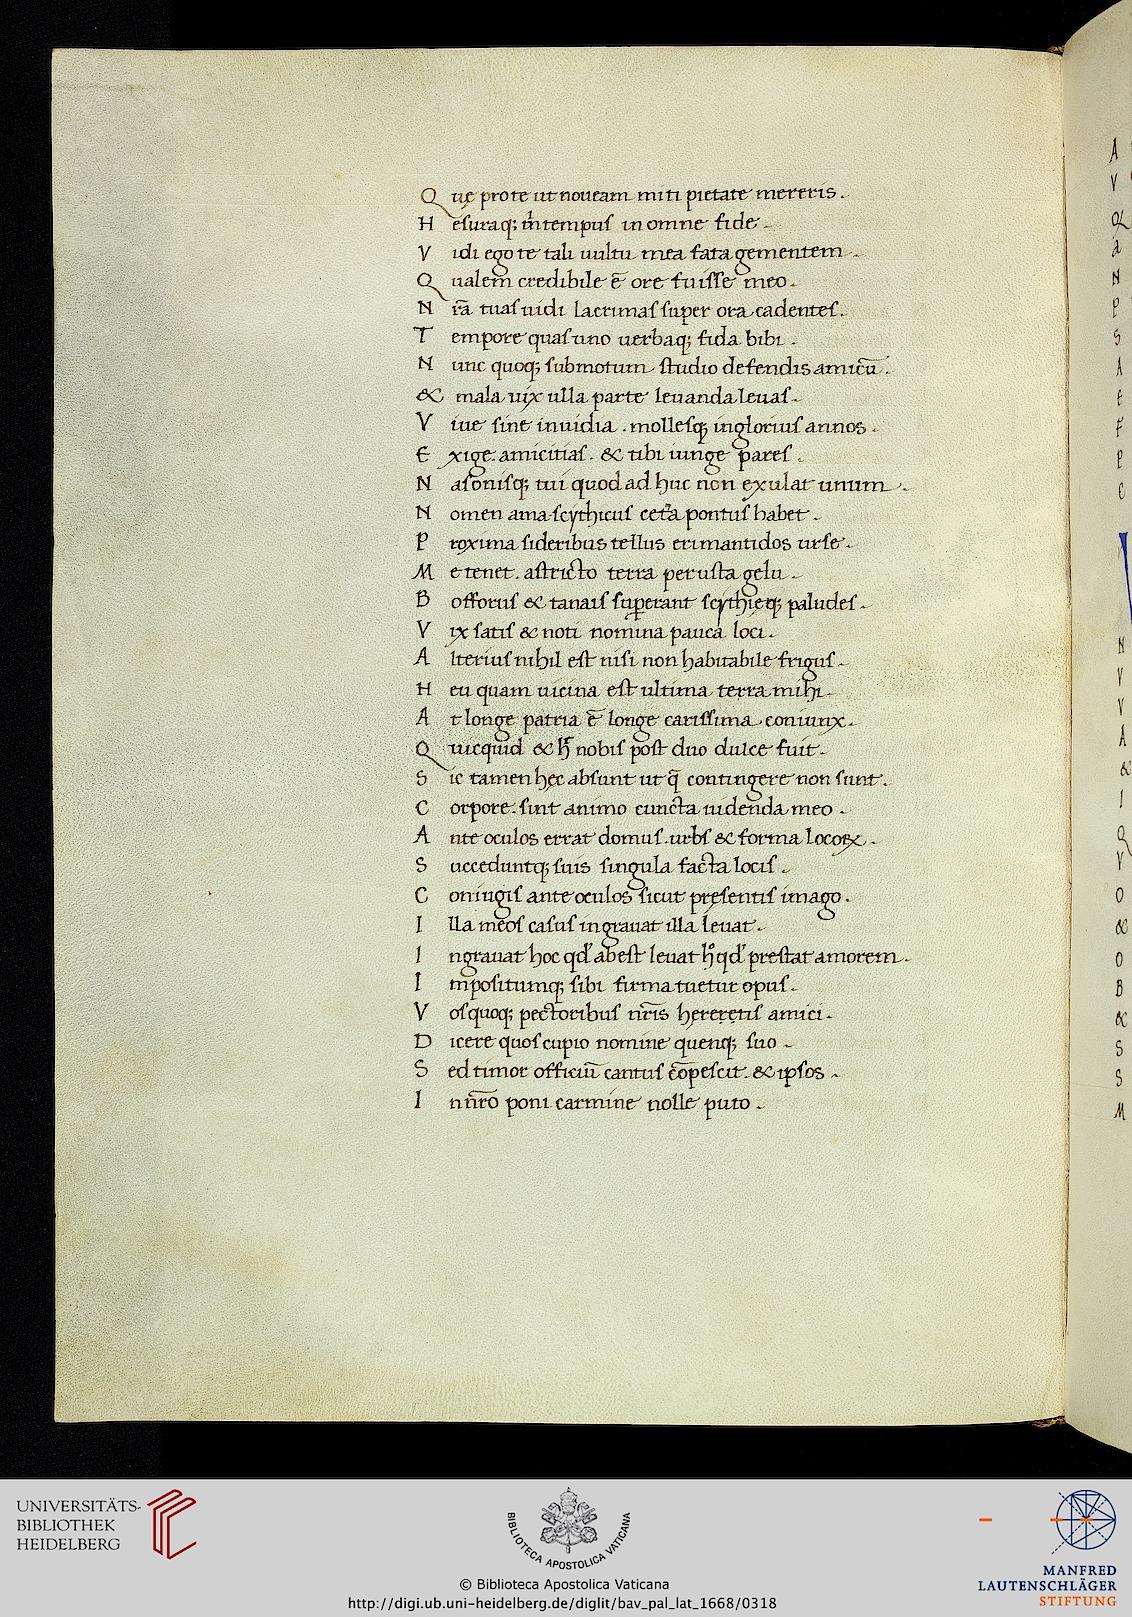 Q uę pro te ut noueam miti pietate mereris.
H esuraq; m̃ tempus in omne fide.
V idi ego te tali uultu mea fata gementem.
Q ualem credibile ē ore fuisse meo.
N r̃a tuas uidi lacrimas super ora cadentes.
T empore quas uno uerbaq; fida bibi.
N unc quoq; submotum studio defendis amicū.
& mala uix ulla parte leuanda leuas.
V iue sine inuidia. mollesq; inglorius annos.
E xige. amicitias. & tibi iunge pares.
N asonisq; tui quod ad huc non exulat unum.
N omen ama scythicus cet̃a pontus habet.
P roxima sideribus tellus erimantidos urse.
M e tenet. astricto terra perusta gelu.
B osforus & tanais suꝑerant scythięq; paludes.
V ix satis & noti nomina pauca loci.
A lterius nihil est nisi non habitabile frigus.
H eu quam uicina est ultima terra mihi.
A t longe patria ē longe carissima coniunx.
Q uicquid & h̃ nobis post duo dulce fuit.
S ic tamen hęc absunt ut q̄ contingere non sunt.
C orpore. sint animo cuncta uidenda meo.
A nte oculos errat domus. urbs & forma locoꝝ.
S ucceduntq; suis singula facta locis.
C oniugis ante oculos sicut pręsentis imago.
I lla meos casus ingrauat illa leuat.
I ngrauat hoc qd' abest leuat h° qd' prestat amorem.
I mpositumq; sibi firma tuetur opus.
V os quoq; pectoribus nr̄is hęreretis amici.
D icere quos cupio nomine quenq; suo.
S ed timor officiū cautus cōpescit. & ipsos.
I n nr̄o poni carmine nolle puto.
UNIVERSITÄTS-
BIBLIOTHEK
HEIDELBERG
BIBLIOTECA APOSTOLICA VATICANA
MANFRED
LAUTENSCHLÄGER
STIFTUNG
© Biblioteca Apostolica Vaticana
http://digi.ub.uni-heidelberg.de/diglit/bav_pal_lat_1668/0318